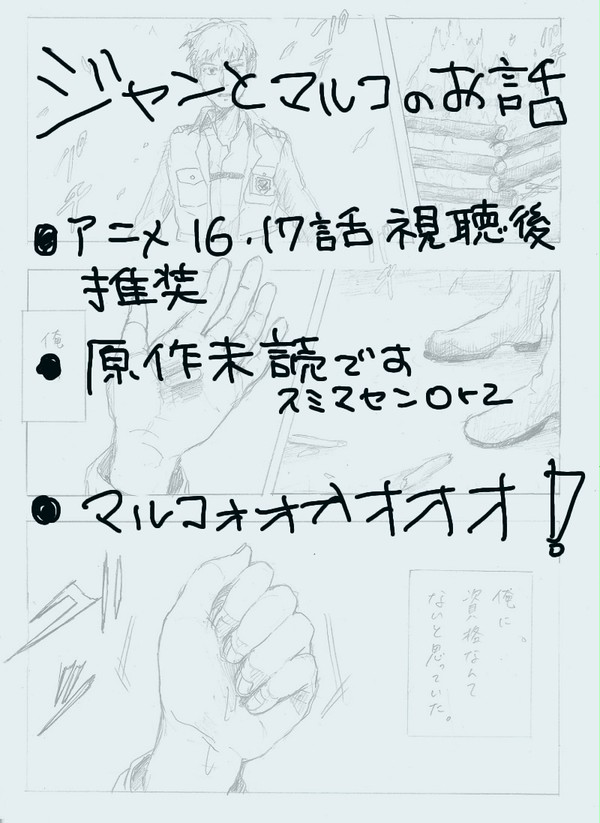 ジャンとマルコのお話
●アニメ16.17話視聴後
推装
●原作未読です
スミマセンOrz
●マルコォオオオオオ!
俺
俺に。
資格なんて
ないと思っていた。